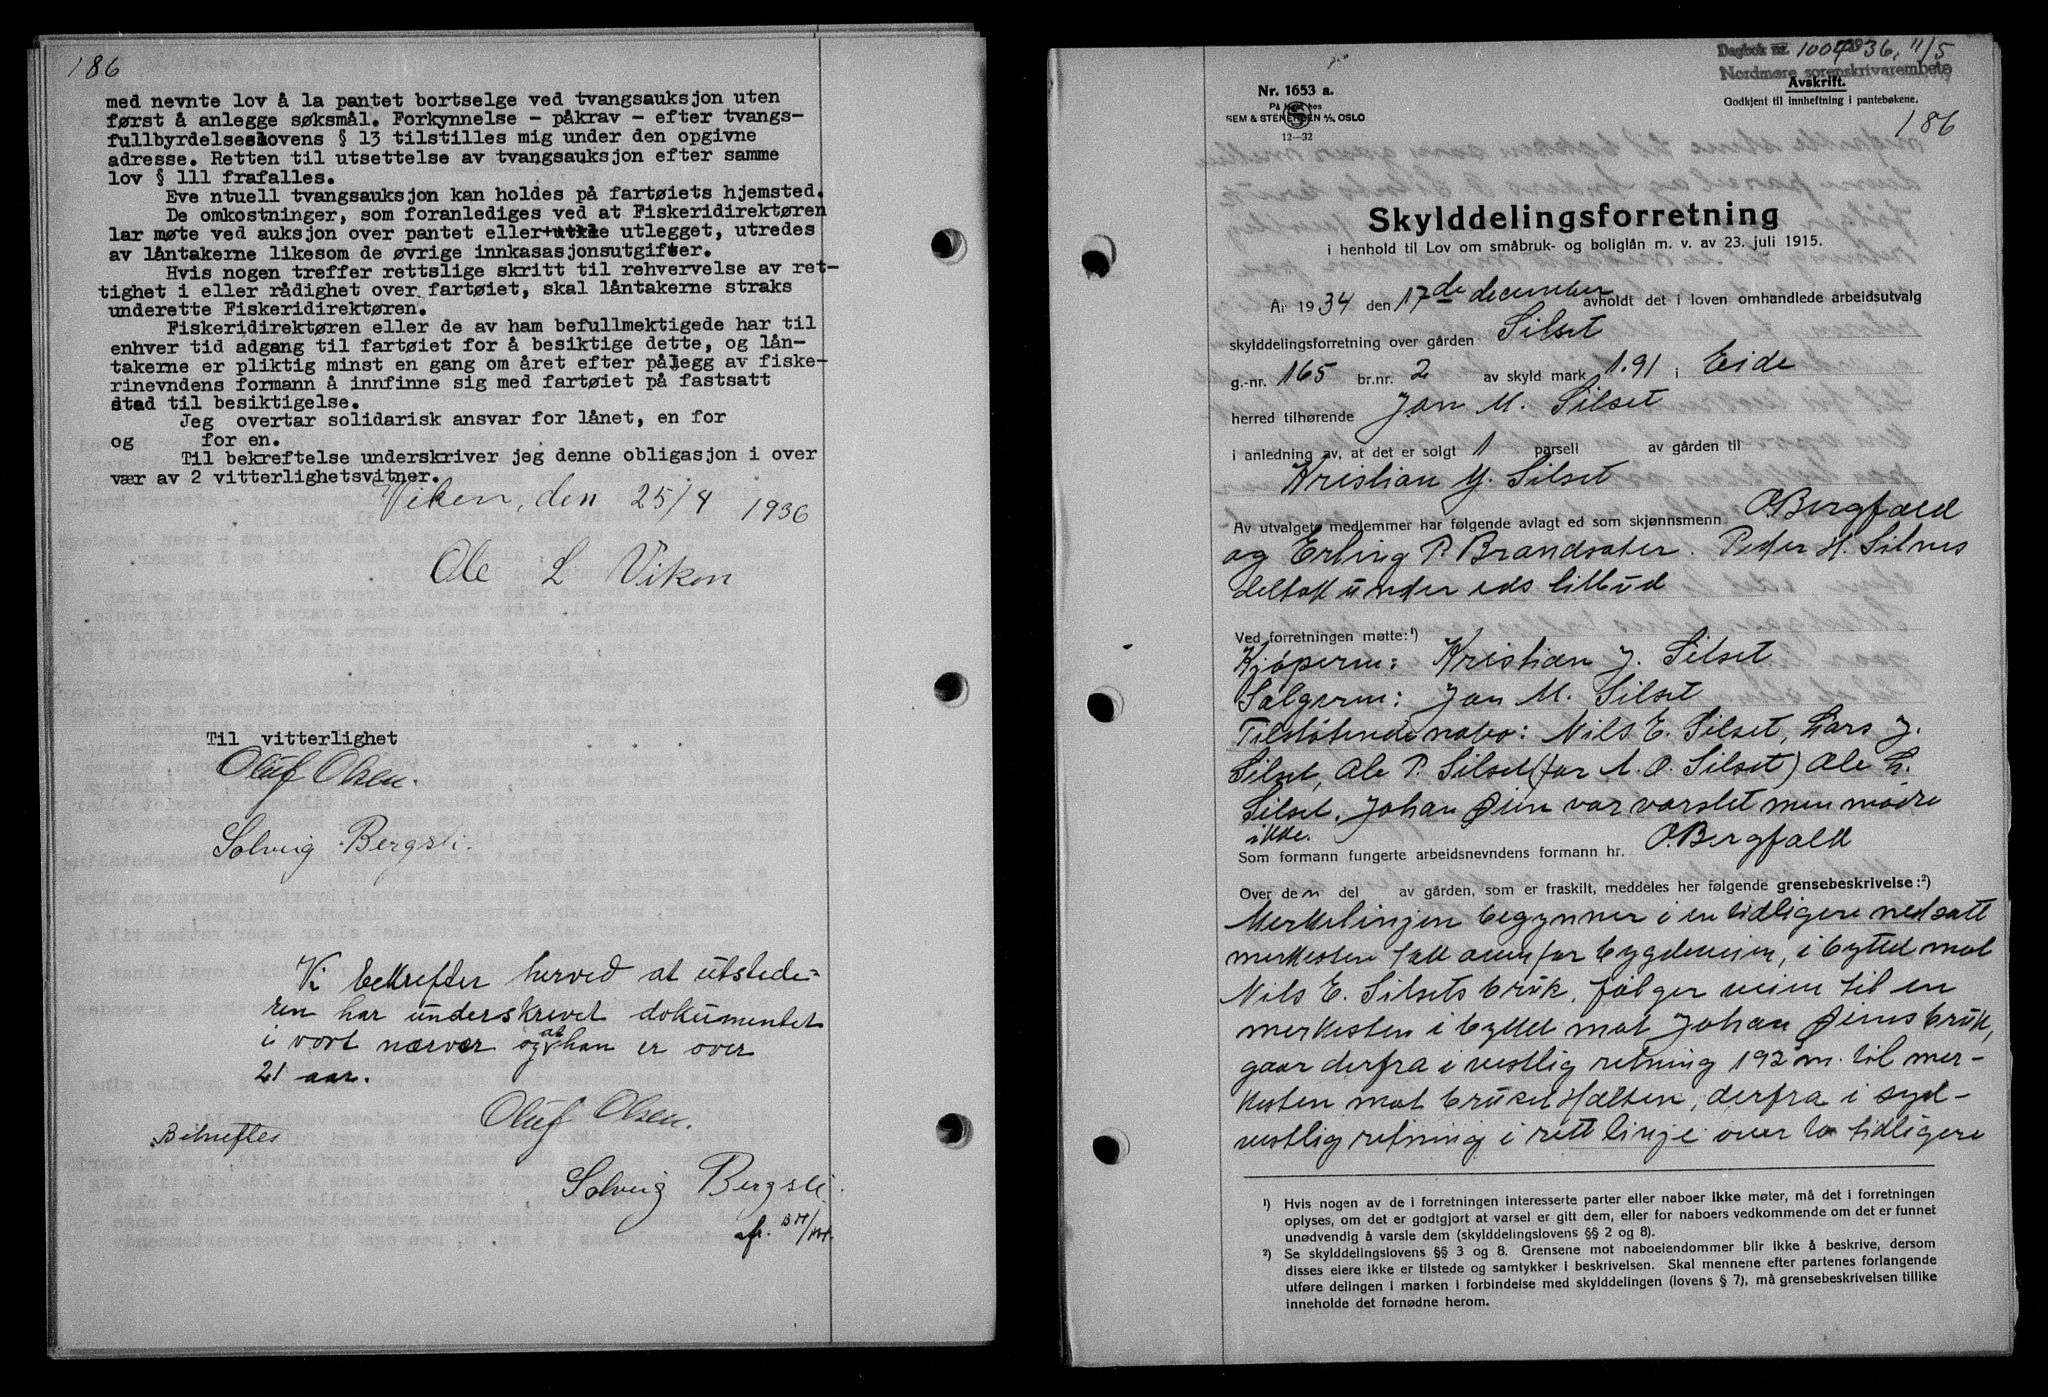 186
med nevnte lov å la pantet bortselge ved tvangsauksjon uten
først å anlegge søksmål. Forkynnelse - påkrav - efter tvangs-
fullbyrdelseslovens § 13 tilstilles mig under den opgivne
adresse. Retten til utsettelse av tvangsauksjon efter samme
lov § 111 frafalles.
Eve ntuell tvangsauksjon kan holdes på fartøiets hjemsted.
De omkostninger, som foranlediges ved at Fiskeridirektøren
lar møte ved auksjon over pantet eller utlegget, utredes
av låntakerne likesom de øvrige innkasasjonsutgifter.
Hvis nogen treffer rettslige skritt til rehvervelse av ret-
tighet i eller rådighet over fartøiet, skal låntakerne straks
underette Fiskeridirektøren.
Fiskeridirektøren eller de av ham befullmektigede har til
enhver tid adgang til fartøiet for å besiktige dette, og lån-
takerne er pliktig minst en gang om året efter pålegg av fiske-
rinevndens formann å innfinne sig med fartøiet på fastsatt
sted til besiktigelse.
Jeg overtar solidarisk ansvar for lånet, en for
og for en.
Til bekreftelse underskriver jeg denne obligasjon i over
vær av 2 vitterlighetsvitner.
Viken, den 25/4 1936
Ole L Viken
Til vitterlighet
Oluf Olsen.
Solveig Bergsli.
Vi bekrefter herved at utstede=
ren har underskrevet dokumentet
i vort nærvær og at han er over
21 aar.
Oluf Olsen.
Solveig Bergsli.
Bekreftes
Dagbok nr. 1004 36, 11/5
Nordmøre sorenskrivarembete
Avskrift.
Godkjent til innheftning i pantebøkene.
186
Nr. 1653 a.
På lager hos
SEM & STENERSEN A/S, OSLO
12-32
Skylddelingsforretning
i henhold til Lov om småbruk- og boliglån m. v. av 23. juli 1915.
År 1934 den 17de december avholdt det i loven omhandlede arbeidsutvalg
skylddelingsforretning over gården Silset
g.-nr. 165 br.nr. 2 av skyld mark 1.91 i Eide
herred tilhørende Jon M. Silset
i anledning av, at det er solgt 1 parsell av gården til
Kristian J. Silset
Av utvalgets medlemmer har følgende avlagt ed som skjønnsmenn O Bergfald
og Erling P. Brandsæter. Peder H. Silnes
deltok under eds tilbud
Ved forretningen møtte:¹)
Kjøperen: Kristian J. Silset
Sælgeren: Jon M. Silset
Tilstøtende nabo: Nils E. Silset, Lars J.
Silset, Ole P. Silset (for A. O. Silset) Ole L.
Silset. Johan Øien var varslet men mødte
ikke.
Som formann fungerte arbeidsnevndens formann hr. O. Bergfald
Over den del av gården, som er fraskilt, meddeles her følgende grensebeskrivelse:²)
Merkelinjen begynner i en tidligere nedsatt
merkesten tett ovenfor bygdeveien, i byttet mot
Nils E. Silsets bruk, følger veien til en
merkesten i byttet mot Johan Øiens bruk,
gaar derfra i vestlig retning 192 m. til mer-
kesten mot bruket Hælten, derfra i syd-
vestlig retning i rett linje over to tidligere
¹) Hvis nogen av de i forretningen interesserte parter eller naboer ikke møter, må det i forretningen
oplyses, om det er godtgjort at varsel er gitt dem, eller for naboers vedkommende om det er funnet
unødvendig å varsle dem (skylddelingslovens §§ 2 og 8).
²) Se skylddelingslovens §§ 3 og 8. Grensene mot naboeiendommer blir ikke å beskrive, dersom
disses eiere ikke er tilstede og samtykker i beskrivelsen. Skal mennene efter partenes forlangende
utføre delingen i marken i forbindelse med skylddelingen (lovens § 7), må grensebeskrivelsen tillike
inneholde det fornødne herom.